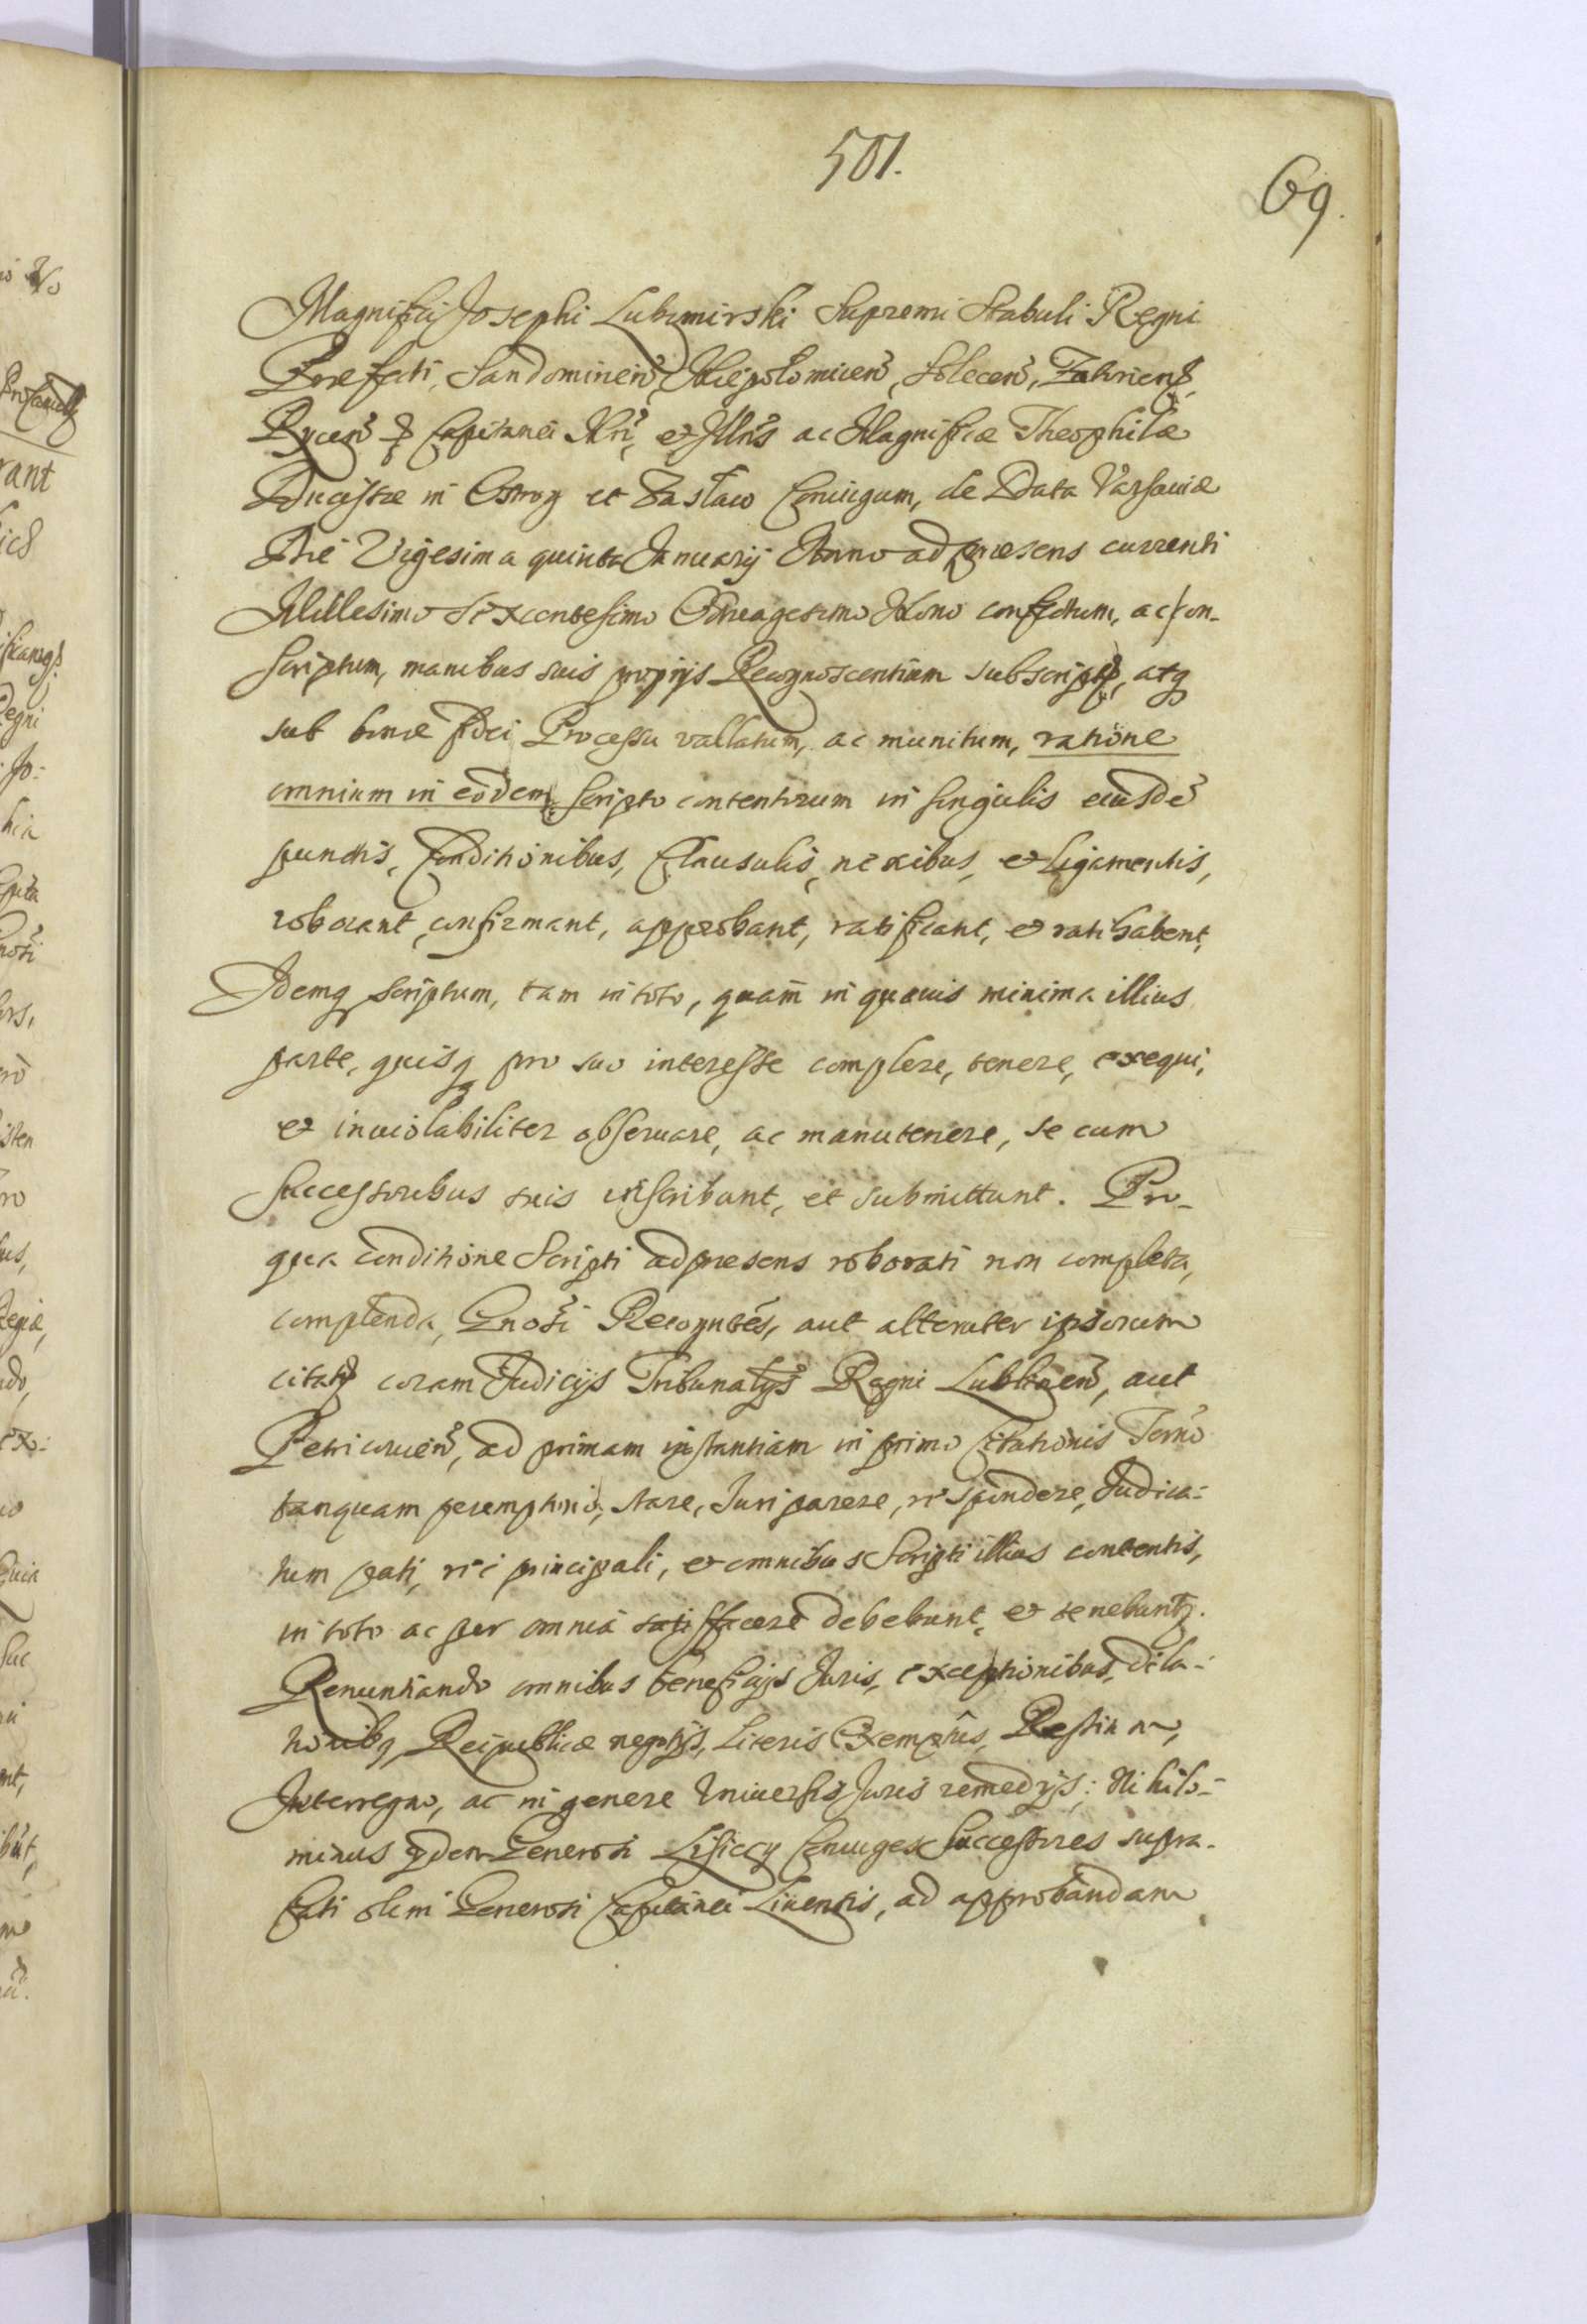 501.
69.
Magnifici Josephi Lubomirski Supremi Stabuli Regni
Præfecti, Sandomirien, Niepolomicen, Solecen, Zatorien,
Rycen & Capitanei Nri, et Illris ac Magnificæ Theophilæ
Ducissæ in Ostrog et Zaslaw Coniugum, de Data Varsaviæ
Die Vigesima quinta Januarij Anno ad præsens currenti
Millesimo Sexcentesimo Octuagesimo Nono confectum, ac con-
scriptum, manibus suis proprijs Recognoscentium subscript, atq
sub bonæ fidei Processu vallatum, ac munitum, ratione
omnium in eodem Scripto contentorum in singulis eiusdē
punctis, Conditionibus, Clausulis, nexibus, et Ligamentis,
roborant, confirmant, approbant, ratificant, et ratihabent,
Idemq scriptum, tam in toto, quam in quavis minima illius
parte, quisq pro suo interesse complere, tenere, exequi,
et inviolabiliter observare, ac manutenere, se cum
Successoribus suis inscribunt, et submittunt. Pro
qua conditione Scripti ad præsens roborati non completa,
complenda, Gnosi Recogntes, aut alteruter ipsorum
citat coram Judicijs Tribunalijs Regni Lublinen, aut
Petricovien, ad primam instantiam in primo Citationis Termo
tanquam peremptorio, stare, Juri parere, respondere, Judica-
tum pati, rei principali, et omnibus Scripti illius contentis,
in toto ac per omnia satisfacere debebunt, et tenebunt.
Renuntiando omnibus beneficijs Juris, exceptionibus, dila-
tionibq, Reipublicæ negotijs, Literis Exemptus, Pestin
Interregno, ac in genere Universis Juris remedijs: Nihilo-
minus ydem Generosi Lisieccy Coniuges Successores supra-
fati olim Generosi Capitanei Livensis, ad approbandam